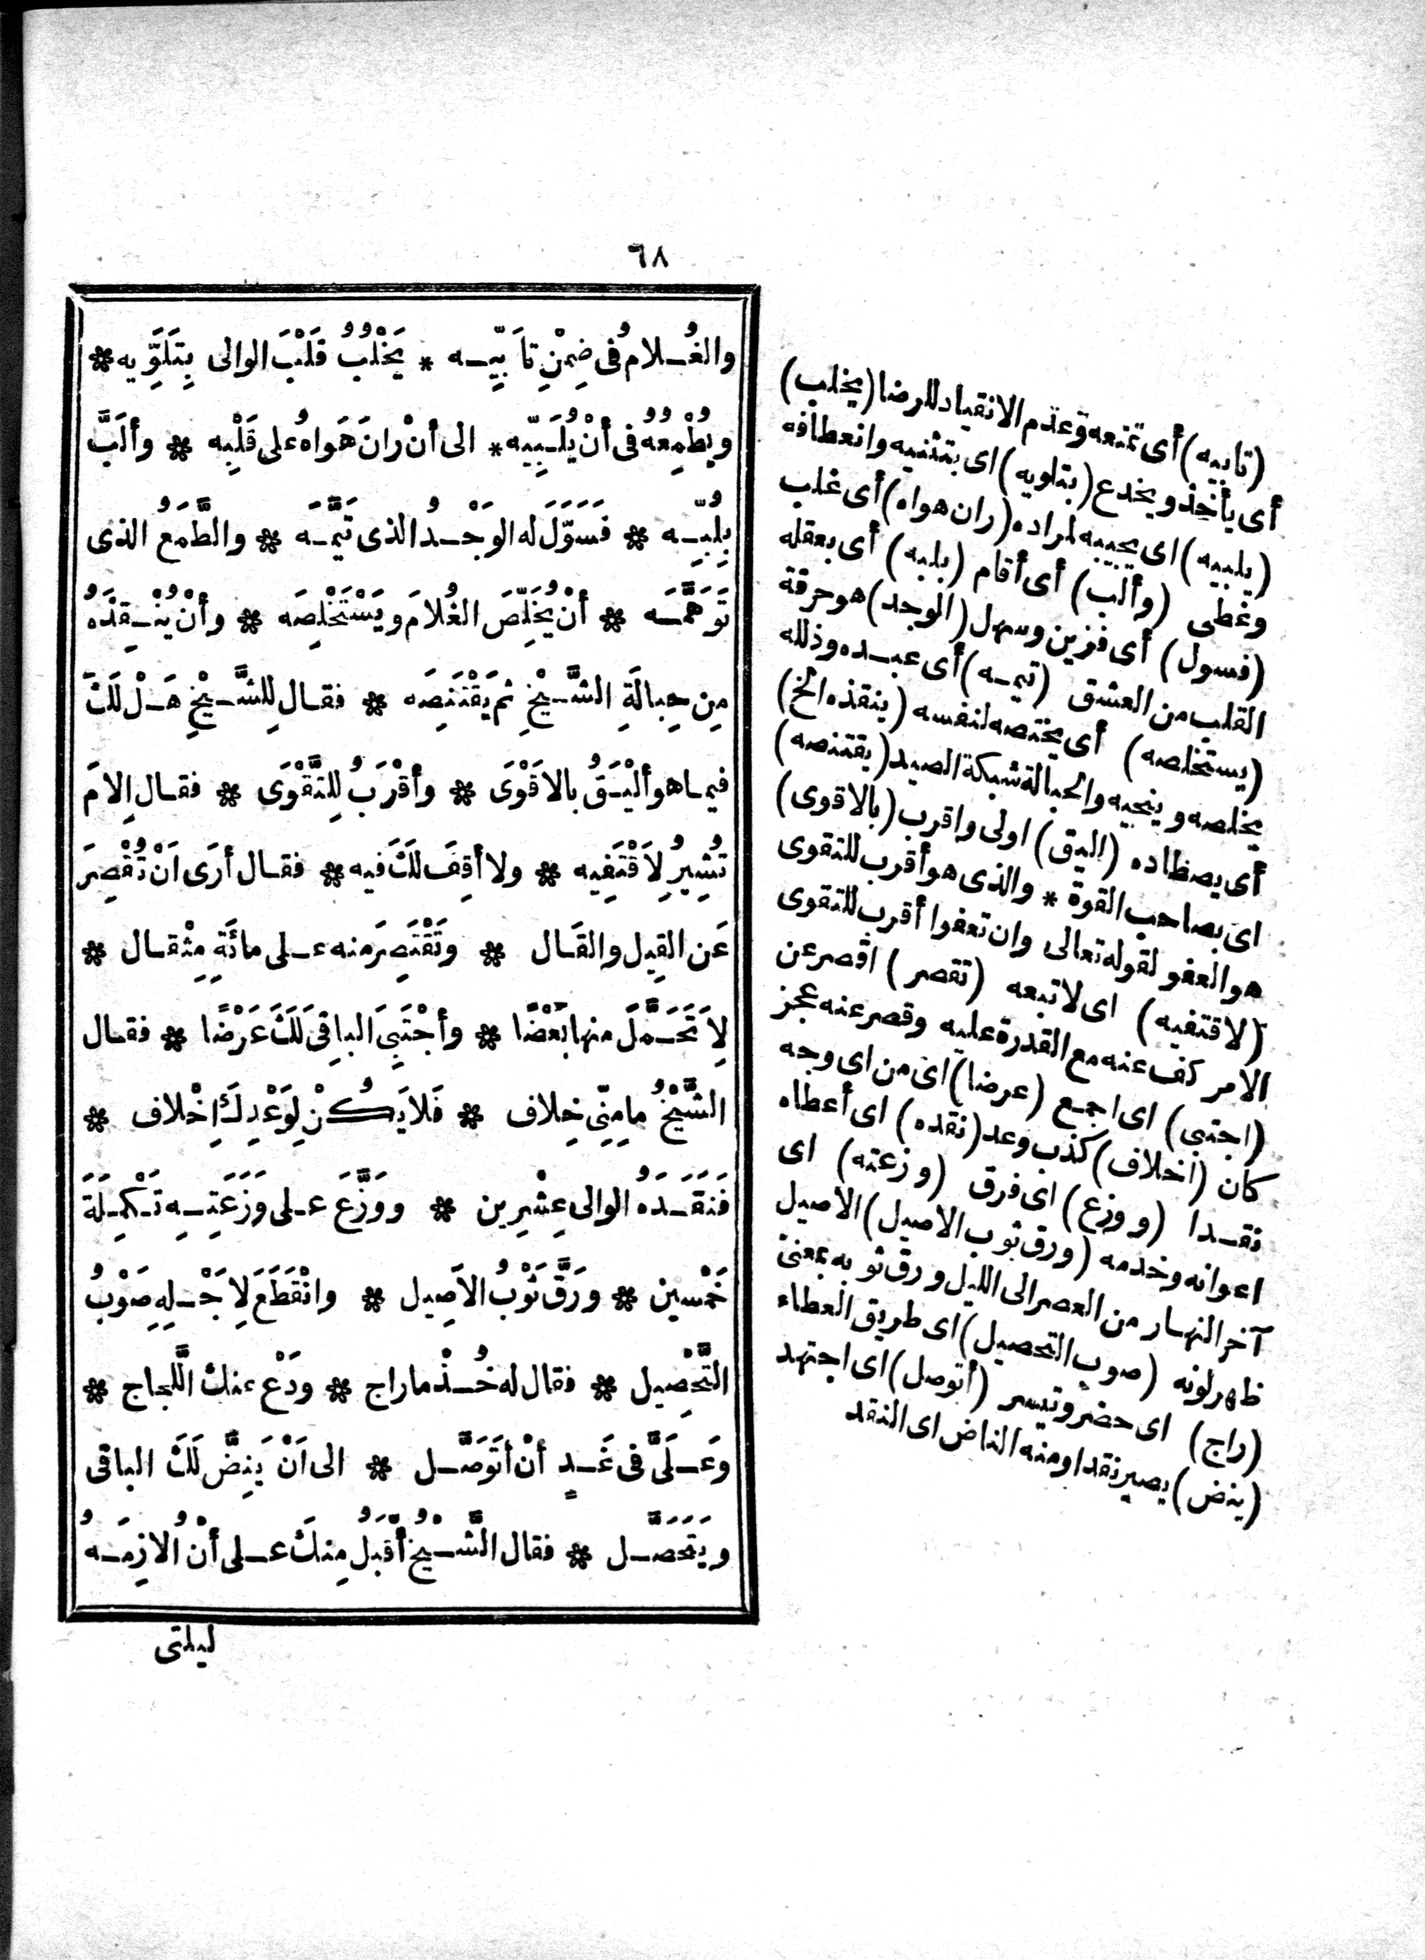 ٦٨
والغُـلامُ فى ضِمْنِ تَأَبِّيـه * يَخْلُبُ قَلْبَ الوالى بِتَلَوِّيه *
ويُطْمِعُهُ فى أَنْ يُلَبِّيه * الى أنْ رانَ هَوَاهُ على قَلْبِه * وألَبَّ
بِلُبِّـه * فَسَوَّلَ له الوَجْـدُ الذى تَيَّمَـه * والطَّمَعُ الذى
تَوَهَّمَـه * أنْ يُخَلِّصَ الغُلامَ ويَسْتَخْلِصَه * وأنْ يُنْـقِذَهُ
مِن حِبالَةِ الشَّـيْخِ ثم يَقْتَنِصَه * فقـال لِلشَّـيْخِ هَـلْ لَكَ
فيمـا هو ألْيَـقُ بالاَقْوَى * وأقْرَبُ لِلتَّقْوَى * فقـال اِلامَ
تُشِيرُ لِاَقْتَفِيه * ولا أقِفَ لَكَ فيه * فقـال أرَى اَنْ تُقْصِرَ
عَن القِيل والقَـال * وتَقْتَصِرَ منه عـلى مائَةِ مِثْقـال *
لِاَتَحَـمَّلَ منها بَعْضًا * وأجْتَبِىَ الباقِىَ لَكَ عَرْضًا * فقـال
الشَّيْخُ ما مِنِّى خِلاف * فَلا يَكُنْ لِوَعْدِكَ اِخْلاف *
فَنَقَـدَهُ الوالى عِشْرِين * ووَزَّعَ عـلى وَزَعَتِـهِ تَـكْمِـلَةَ
خَمْسِين * ورَقَّ ثَوْبُ الاَصِيل * وانْقَطَعَ لِاَجْـلِهِ صَوْبُ
التَّحْصِيل * فقال له خُـذْ ما راج * ودَعْ عنك اللَّجاج *
وعَـلَىَّ فى غَـدٍ أنْ أتَوَصَّـل * الى اَنْ يَنِضَّ لَكَ الباقى
ويَتَحَصَّـل * فقال الشَّـيْخُ أقْبَلُ مِنكَ عـلى أنْ اُلازِمَـهُ
ليلتى
(تأبيه) أى تمنعه وعدم الانقياد للرضا (يخلب)
أى يأخذ ويخدع (بتلويه) اى بتثنيه وانعطافه
(يلبيه) اى يجيبه لمراده (ران هواه) أى غلب
وغطى (وألب) أى أقام (بلبه) أى بعقله
(فسول) أى فزين وسهل (الوجد) هو حرقة
القلب من العشق (تيمـه) أى عبـده وذلله
(يستخلصه) أى يختصه لنفسه (ينقذه الخ)
يخلصه وينجيه والحبالة شبكة الصيد (يقتنصه)
أى يصطاده (اليق) اولى واقرب (بالاقوى)
اى بصاحب القوة * والذى هو أقرب للتقوى
هو العفو لقوله تعالى وان تعفوا أقرب للتقوى
(لاقتفيه) اى لاتبعه (تقصر) اقصر عن
الامر كف عنه مع القدرة عليه وقصر عنه عجز
(اجتبى) اى اجمع (عرضا) اى من اى وجه
كان (اخلاف) كذب وعد (نقده) اى أعطاه
نقـدا (ووزع) اى فرق (وزعته) اى
اعوانه وخدمه (ورق ثوب الاصيل) الاصيل
آخر النهـار من العصر الى الليل ورق ثوبه بمعنى
ظهر لونه (صوب التحصيل) اى طريق العطاء
(راج) اى حضر وتيسر (أتوصل) اى اجتهد
(ينض) يصير نقدا ومنه الناض اى النقد